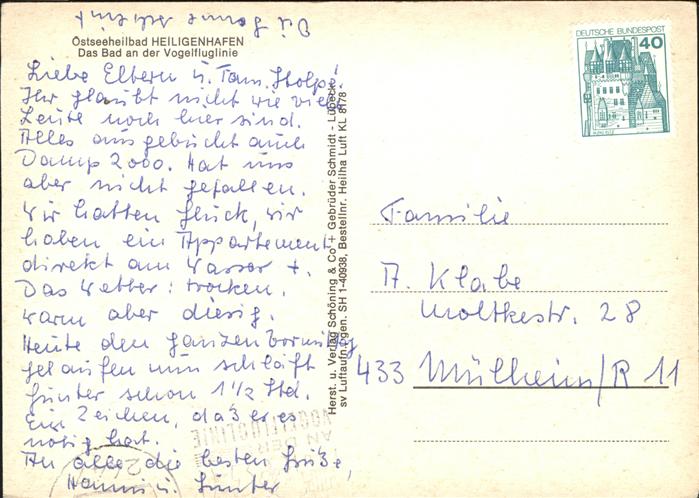 Ostseeheilbad HEILIGENHAFEN
Das Bad an der Vogelfluglinie
Liebe Eltern u. Fam. Stolp!
Ihr glaubt nicht wie viele
Leute noch hier sind.
Alles ausgebucht auch
Damp 2000. Hat uns
aber nicht gefallen.
Wir hatten Glück, wir
haben ein Appartement
direkt am Wasser +.
Das Wetter: trocken.
warm aber diesig.
Heute den ganzen Vormittag
gelaufen nun schläft
Günter schon 1 1/2 Std.
Ein Zeichen, daß er es
nötig hat.
An alle die besten Grüße,
Hanni u. Günter
Herst. u. Verlag Schöning & Co + Gebrüder Schmidt - Lübeck
sv Luftaufn.) gen. SH 1-40938, Bestellnr. Heilha Luft KL 8178
DEUTSCHE BUNDESPOST
40
Familie
A. Klabe
Moltkestr. 28
433 Mülheim/R 11
AN DER
VOGELFLUGLINIE